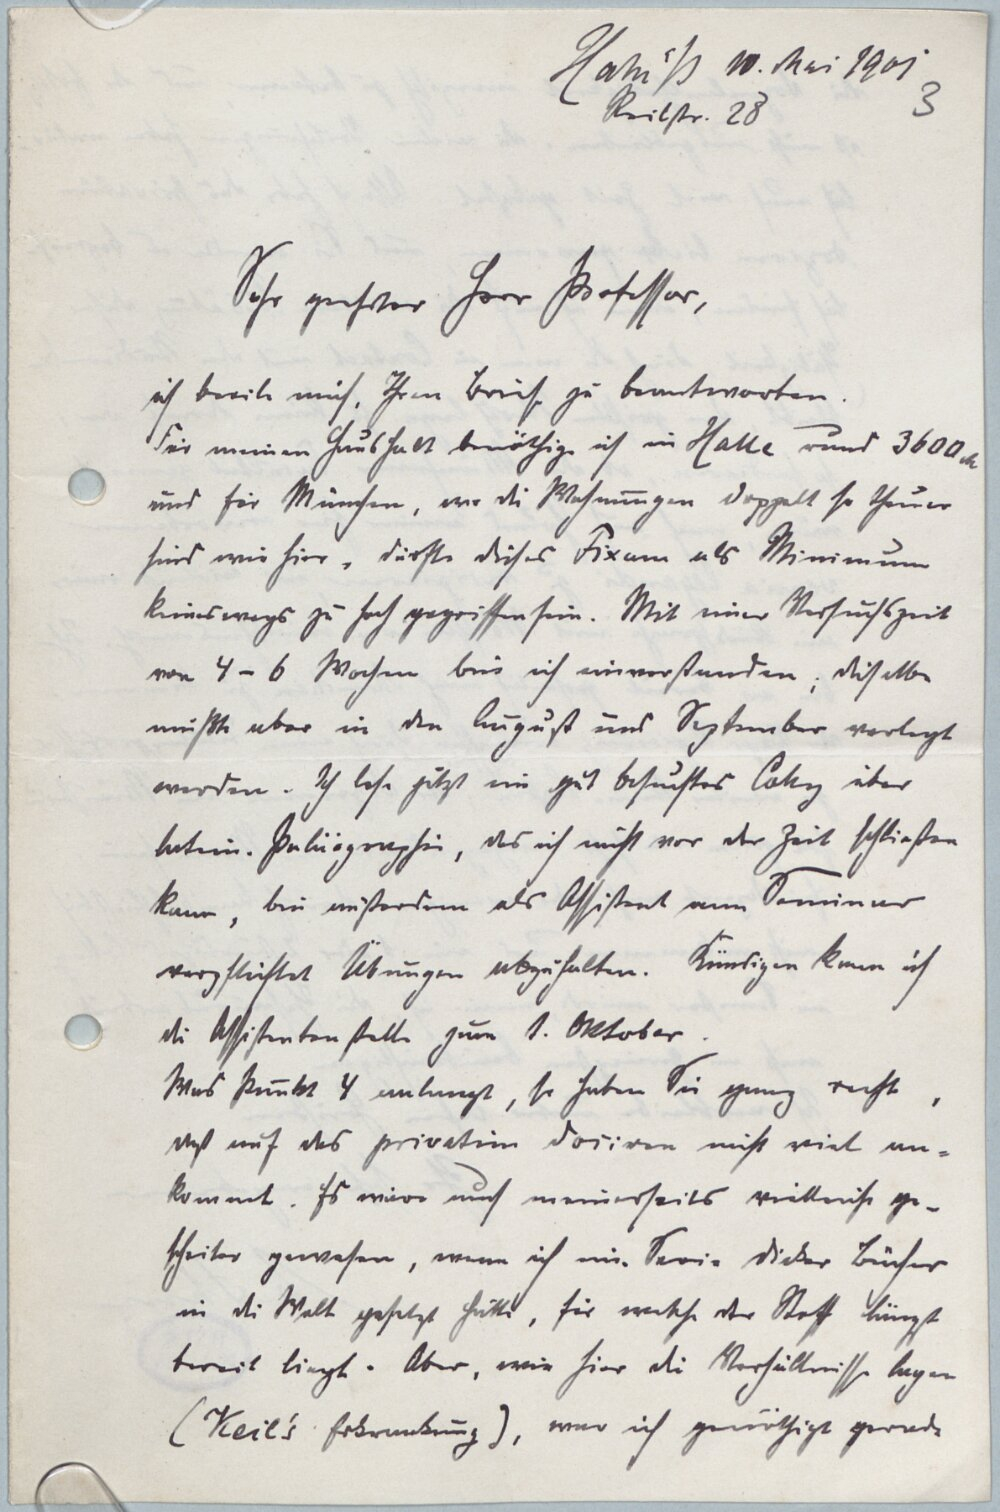 Halle a/S 10. Mai 1901
Reilstr. 28
3
Sehr geehrter Herr Professor,
ich beeile mich, Ihren Brief zu beantworten.
Für meinen Haushalt benöthige ich in Halle rund 3600 M
und für München, wo die Wohnungen doppelt so theuer
sind wie hier, dürfte dieses Fixum als Minimum
keineswegs zu hoch gegriffen sein. Mit einer Versuchszeit
von 4-6 Wochen bin ich einverstanden; dieselbe
müßte aber in den August und September verlegt
werden. Ich lese jetzt ein gut besuchtes Colleg über
latein. Paläographie, das ich nicht vor der Zeit schließen
kann, bin außerdem als Assistent am Seminar
verpflichtet Übungen abzuhalten. Kündigen kann ich
die Assistentenstelle zum 1. Oktober.
Was Punkt 4 anlangt, so haben Sie ganz recht,
daß auf das privatim dociren nicht viel an-
kommt. Es wäre auch meinerseits vielleicht ge-
scheiter gewesen, wenn ich eine Serie dicker Bücher
in die Welt gesetzt hätte, für welche der Stoff längst
bereit liegt. Aber, wie hier die Verhältnisse lagen
(Keil's Erkrankung), war ich genöthigt gerade